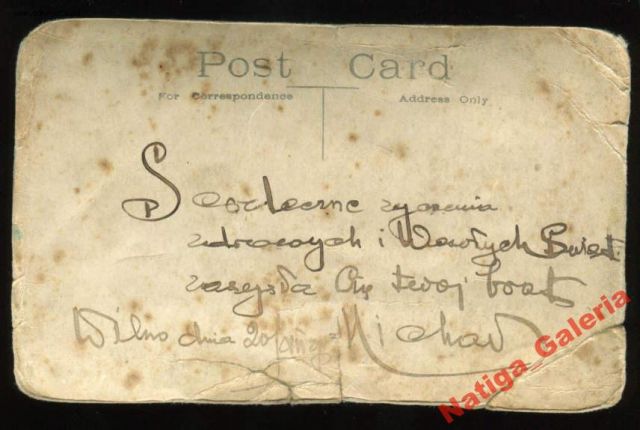 Post Card
For Correspondence
Address Only
Serdeczne życzenia
zdrowych i Wesołych Świąt
zasyła Cię twój brat
Wilno dnia 20 Michał
Natiga_Galeria